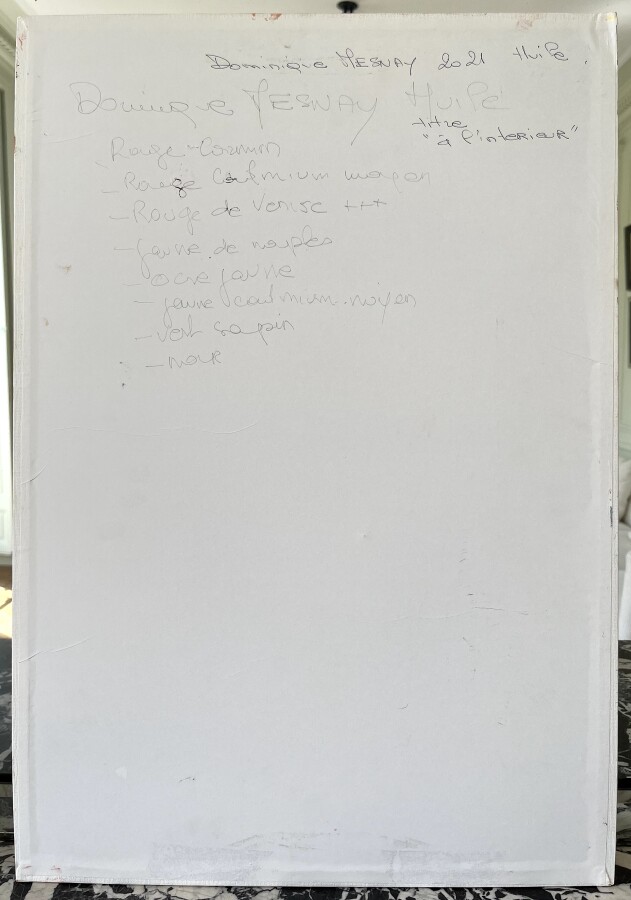 Dominique MESNAY 2021 Huile.
Dominique MESNAY Huile
titre
"à l'interieur"
Rouge-Carmin
-Rouge Cadmium moyen
-Rouge de Venise +++
-jaune de naples
-ocre jaune
-jaune cadmium.moyen
-vert sapin
-noir